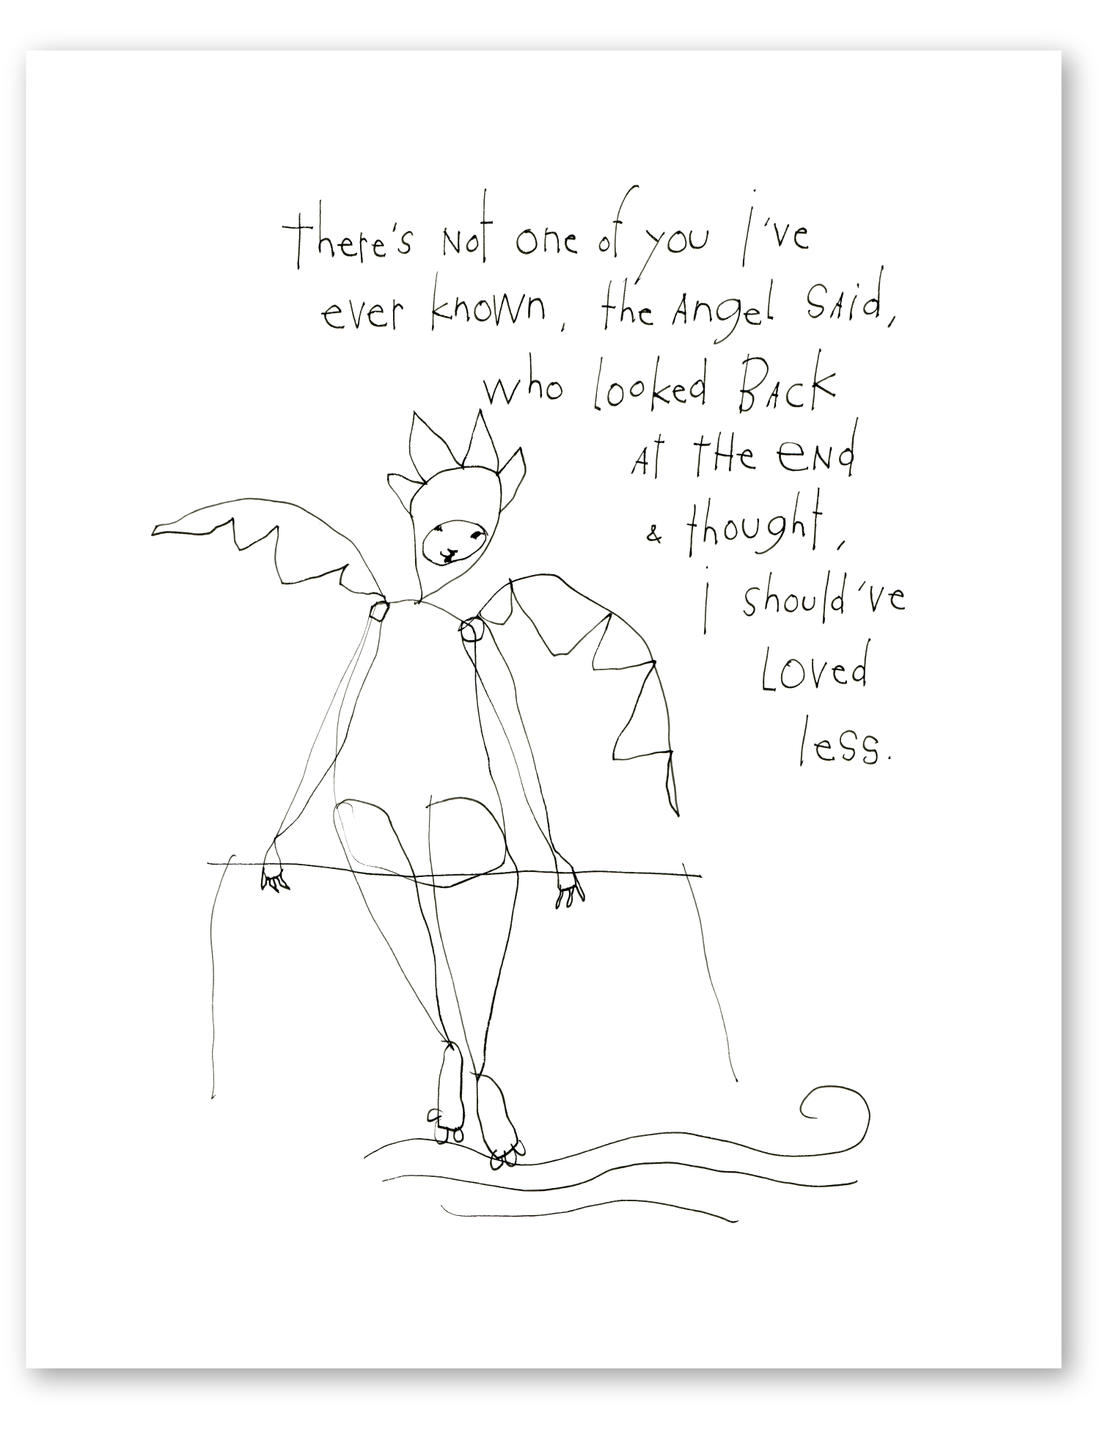 there's Not one of you i've
ever known, the Angel SAid,
who looked BAcK
At tHe eNd
& thought,
i should've
Loved
less.